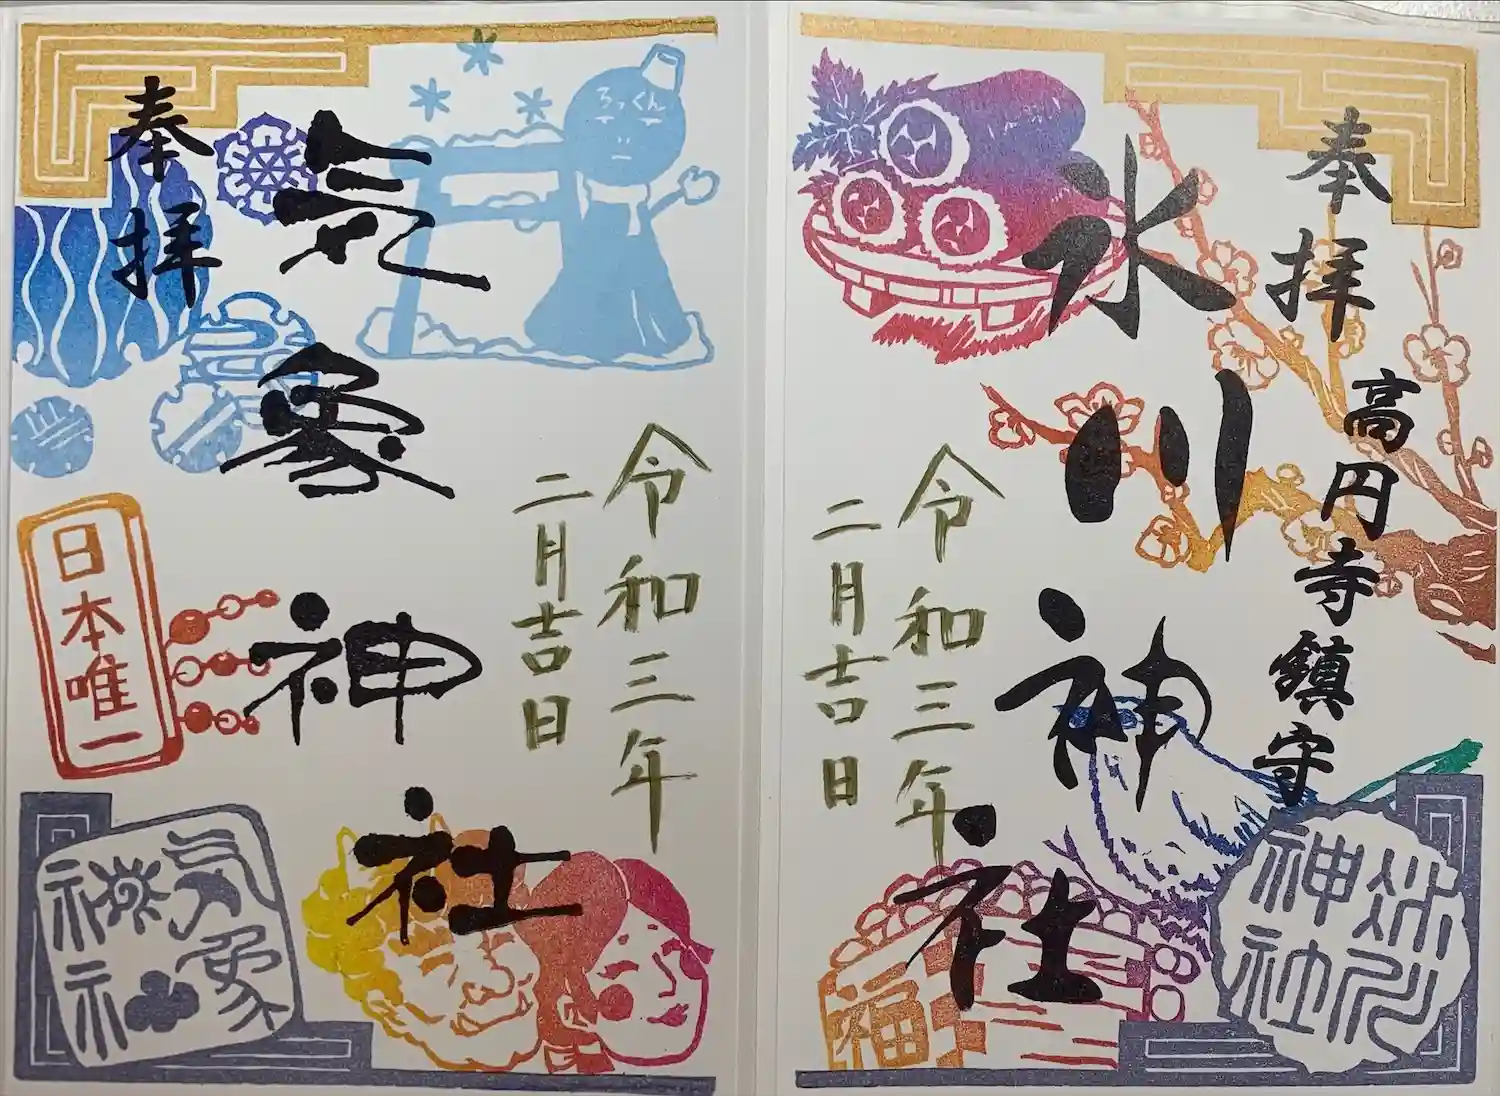 奉拝
高円寺鎮守
氷川神社
令和三年
二月吉日
福
氷川
神社
奉拝
気象神社
ろっくん
令和三年
二月吉日
日本唯一
気象
神社